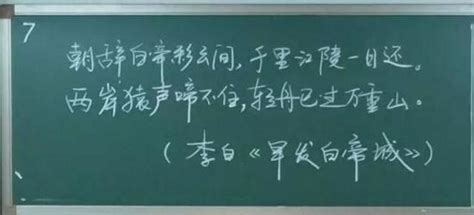 7
朝辞白帝彩云间，千里江陵一日还。
两岸猿声啼不住，轻舟已过万重山。
（李白《早发白帝城》）